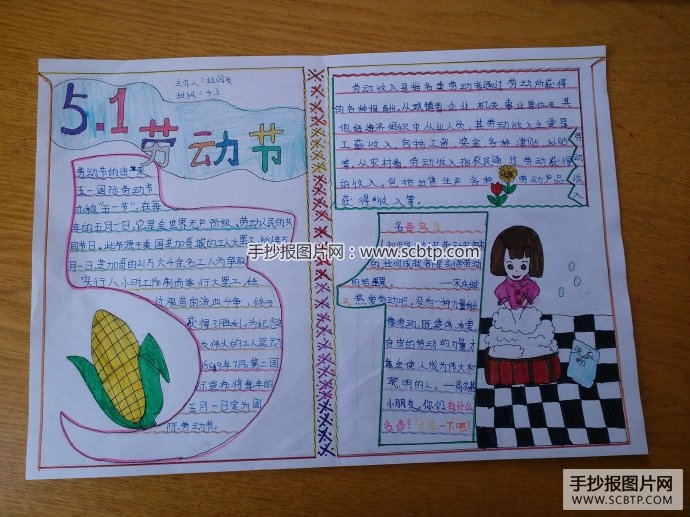 主办人:
班级:4.3
5.1劳动节
劳动节的由来
五一国际劳动节
亦称"五一节",在每
年的五月一日,它是全世界无产阶级、劳动人民的共
同节日。此节源于美国芝加哥城的工人大罢工,
月一日,芝加哥的21万6千余名工人为争取
实行八小时工作制而举行大罢工,经
过艰苦的流血斗争,终于
获得了胜利。为纪念
次伟大的工人运动
1889年7月,第二国
宣布将每年的
五月一日定为国
际劳动节。
劳动收入是指各类劳动者通过劳动所获得
的各种报酬。从城镇看企业、机关、事业单位及其
他经济组织中从业人员,其劳动收入主要是
工薪收入,包括工资 奖金 各种津贴 补贴
等。从农村看,劳动收入指农民通过劳动获得
的收入,包括出售生产各种劳动产品
获得收入等。
劳动收入
名言
的任何成就都是刻苦劳动
的结果。——宋庆龄
2、热爱劳动吧。没有一种力量能
像劳动,既集体、友爱、
自由的劳动的力量才
能使人成为伟大和
聪明的人。——高尔基
小朋友,你们有什么
名言?分享一下吧!
洗衣粉
手抄报图片网:www.scbtp.com
手抄报图片网
WWW.SCBTP.COM